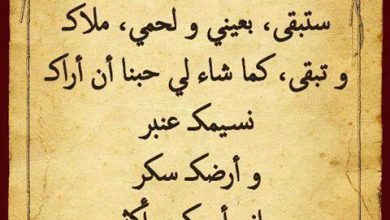 ستبقى، بعيني و لحمي، ملاكـ
و تبقى، كما شاء لي حبنا أن أراكـ
نسيمكـ عنبر
و أرضكـ سكر